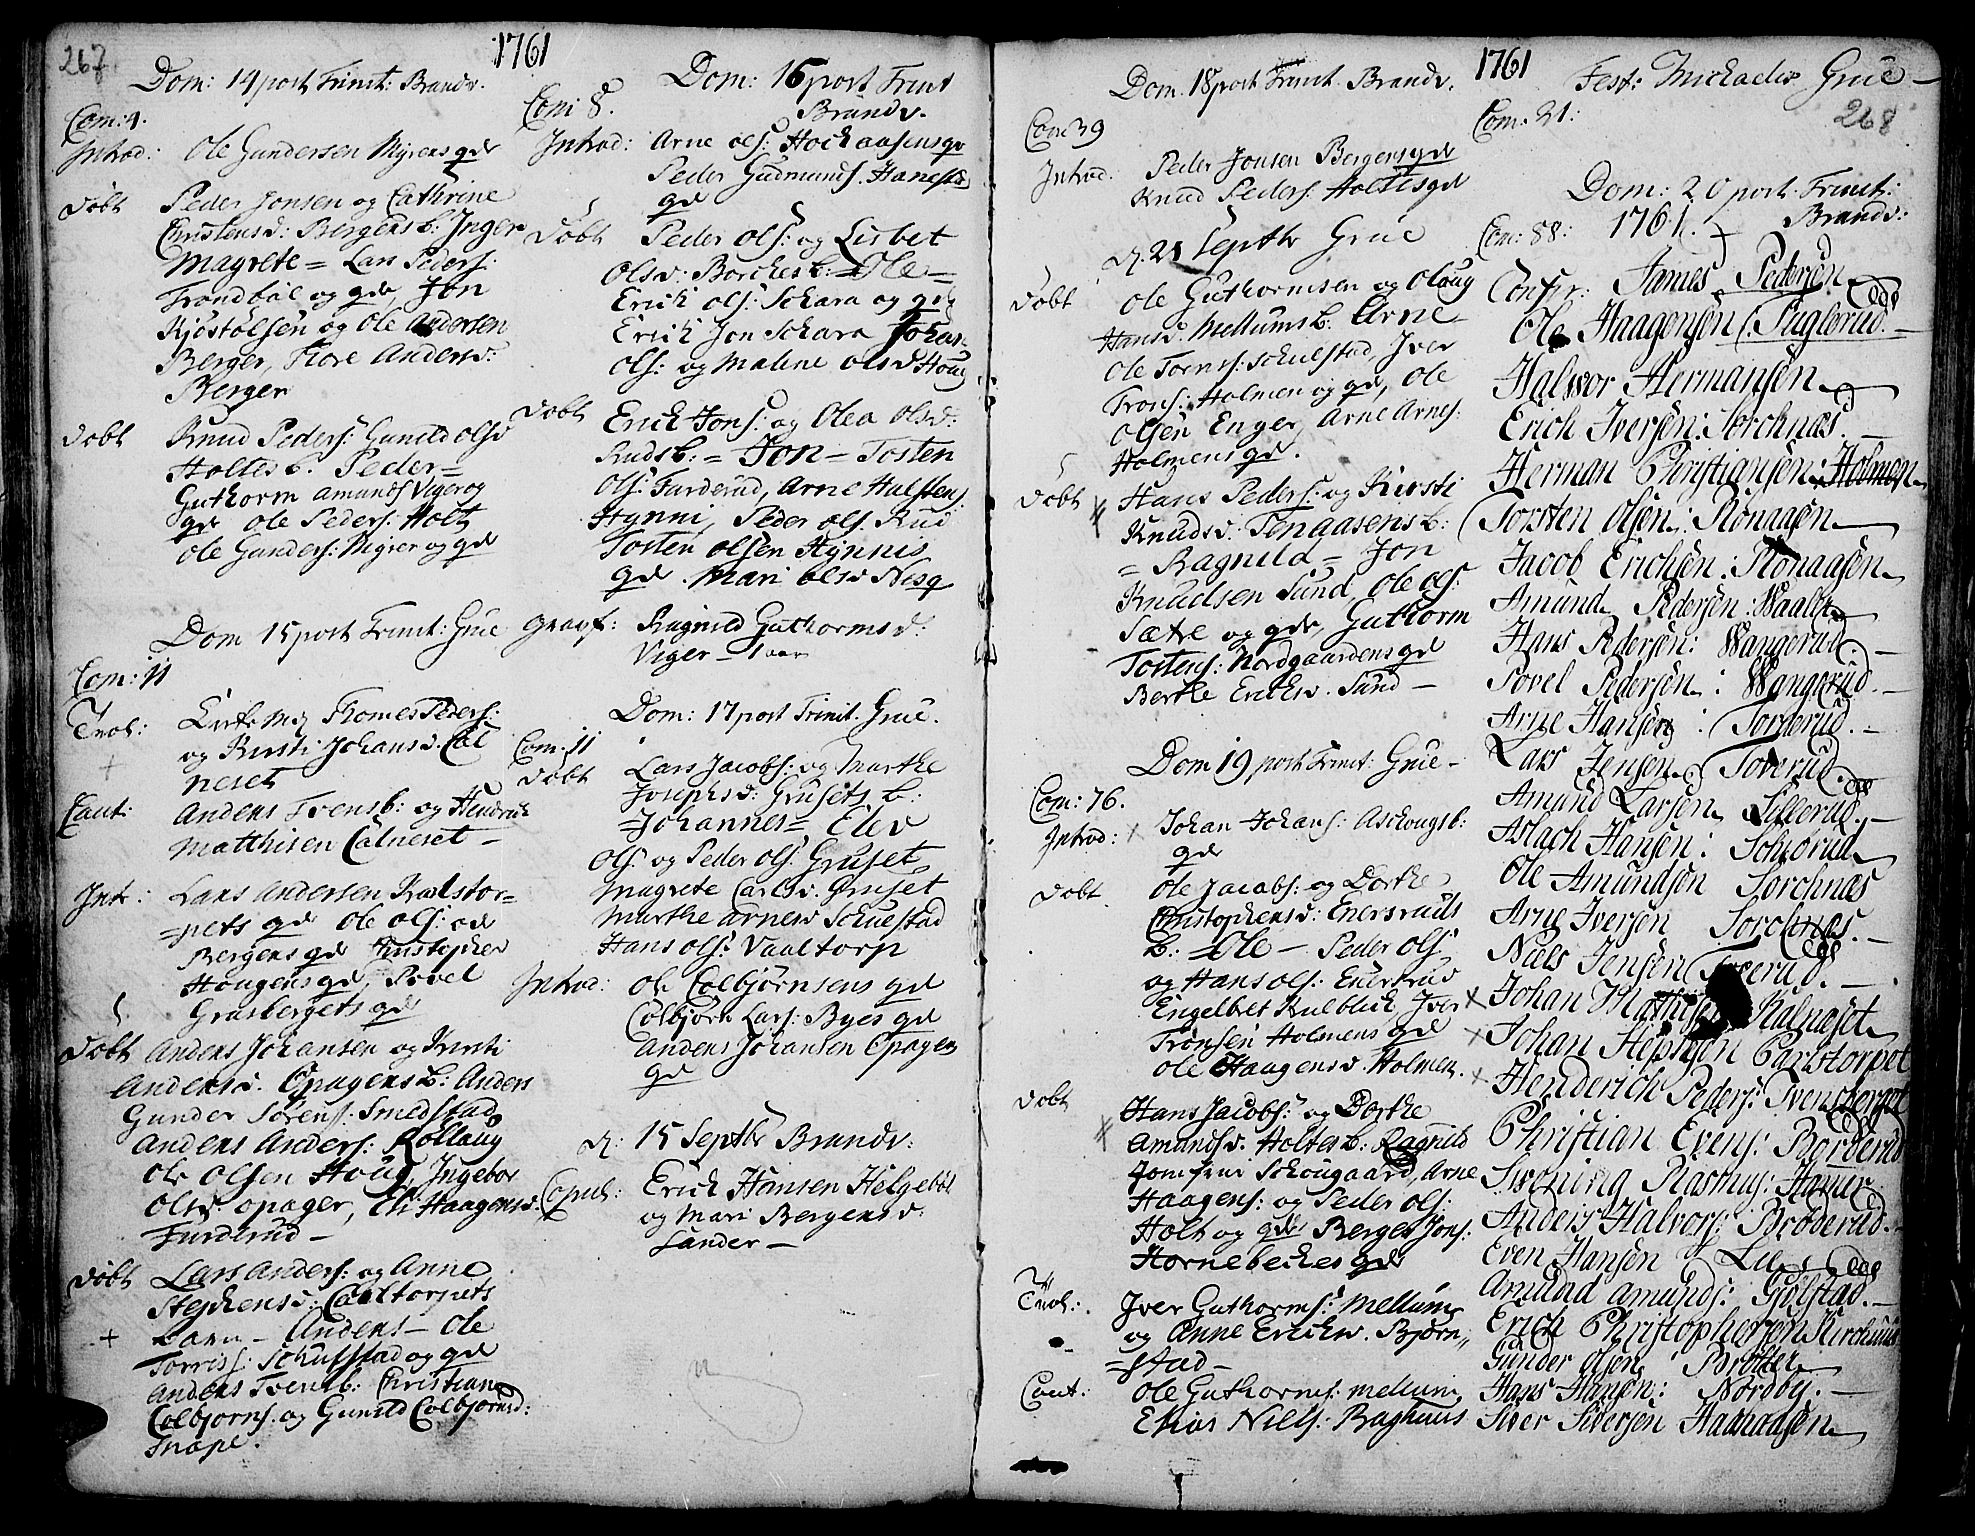 267
1761
Dom: 14 post Trinit: Brandv.
Com: 4.
Introd: Ole Gundersen Myrens qde
Döbt Peder Jonsen og Cathrine
Christensd: Bergens b: Inger
Magrete = Lars Peders:
Trondböl og qde, Jon
Kjöstölsen og Ole Andersen
Berger, Flore Andersd:
Berger
Döbt Knud Peders: Gunild olsd
Holtes b. Peder =
Guthorm Amunds Viger og
qde Ole Peders: Holt
Ole Gunders: Myrer og qde
Dom 15 post Trinit: Grue
Com: 11
Trol: Thomes Peders:
og Kirsti Johansd. Cal
neset
Caut: Anders Tvensb: og Hendrich
Matthisen Calneset –
Int: Lars Andersen Karlstor=
=pets qde Ole ols:
Bergens qde Christopher
Hougens qde, Povel
Grasbergets qde
Döbt Anders Johansen og Kirsti
Andersd. Opagens b: Anders
Gunder Sörens: Smedstad
Anders Anders: Rollaug
Ole Olsen Houg, Ingebor
Olsd opager, Eli Haagensd.
Furderud –
Döbt Lars Anders: og Anne
Stephensd: Carltorpets
barn – Anders – Ole
Torriss: Schulstad og qde
Anders Tvensb: Christian
Colbjörns. og Gunild Colbjörnsd:
Snape.
Dom: 16 post Trinit
Brandv.
Com: 8.
Introd: Arne ols: Hochaasens qv
Peder Gudmunds. Hanestad
qde
Döbt Peder ols: og Lisbet
Olsd: Borches b: = Ole =
Erich ols: Schara og qde
Erich Jon Schara Johan:
Ols: og Maline olsd Houg
Döbt Erich Jons: og Olea olsd:
Ruds b: = Jon – Tosten
Ols: Furderud, Arne Halstens
Hynni, Peder ols. Rud
Tosten Olsen Hynnis
qde. Mari olsd Nesq
Gravf: Ragnild Guthormsd:
Viger – 1 aar
Dom: 17 post Trinit. Grue.
Com: 11
Döbt Lars Jacobs: og Marthe
Josephsd: Grusets b:
= Johannes = Elev
Ols: og Peder ols: Gruset
Magrete Carlsd. Gruset
Marthe Arnesd Schulstad
Hans ols: Vaaltorp
Introd: Ole Colbjörnsens qde
Colbjörn Lars: Byes qde
Anders Johansen Opagers
qde
d: 15 Septbr Brandv:
Copul: Erich Hansen Helgeböl
og Mari Bergersd:
Sander –
1761
Dom. 18 post Trinit. Brandv.
Com 39
Introd: Peder Jonsen Bergens qde
Knud Peders: Holtes qde
d. 21 Septbr Grue
Döbt Ole Guthormsen og Oloug
Hansd. Mellums b. Arne
Ole Torris: Schulstad, Iver
Trons: Holmen og qde, Ole
Olsen Enger, Arne Arnes:
Holmens qde.
Döbt Hans Peders: og Kirsti
Knudsd: Tenaasens b:
= Ragnild = Jon
Knudsen Sund, Ole ols:
Sætre og qde, Guthorm
Tostens: Nordgaardens qde
Berthe Erichsd. Sund –
Dom 19 post Trinit: Grue –
Com: 76.
Introd: Johan Johans: Aschougsb:
qde
Döbt Ole Jacobs: og Dorthe
Christophersd: Enersruds
b: = Ole – Peder ols:
og Hans ols: Enersrud
Engelbret Kulblich Iver
Trönsen Holmens qde
Ole Haagensd. Holmen.
Döbt Hans Jacobs: og Dorthe
Amundsd. Holter b: Ragnild
Jomfrue Schougaard, Arne
Haagens: og Peder ols:
Holt og qde Berger Jons:
Hornebeches qde
Trol: Iver Guthorms: Mellum
og Anne Erichsd. Björn=
=stad –
Caut: Ole Guthorms: mellum
Elias Niels: Baghuus
Fest: Michaelis Grue –
Com. 21:
268
Dom: 20 post Trinit:
1761. Brandv:
Com: 88:
Confir: James Pedersen
Ole Haagensen Fuglerud.
Halwor Hermansen
Erich Iversen: Sorchnæs.
Herman Christiansen: Holmen
Torsten Olsen: Rönaasen
Jacob Erichsen: Rönaasen
Amund Pedersen: Waaler
Hans Pedersen: Wangerud. –
Povel Pedersen: Wangerud. –
Arne Hansen: Torderud. –
Lars Jensen: Toverud.
Amund Larsen Sillerud. –
Aslach Hansen: Schörud
Ole Amundsen Sorchnæs
Arne Iversen Sorchnæs. –
Niels Jensen Tverud. –
Johan Mathisen Kalnæset
Johan Stephsen Carlstorpet
Henderich Peders: Tvensberget
Christian Evens: Borderud
Swening Rasmus: Hamer
Anders Halvors: Bröderud. –
Even Hansen Lie
Amund Amunds: Gjölstad. –
Erich Christophersen Kirchuus
Gunder Olsen: Bröther
Hans Hansen: Nordbye. –
Siver Siversen Haanaasen